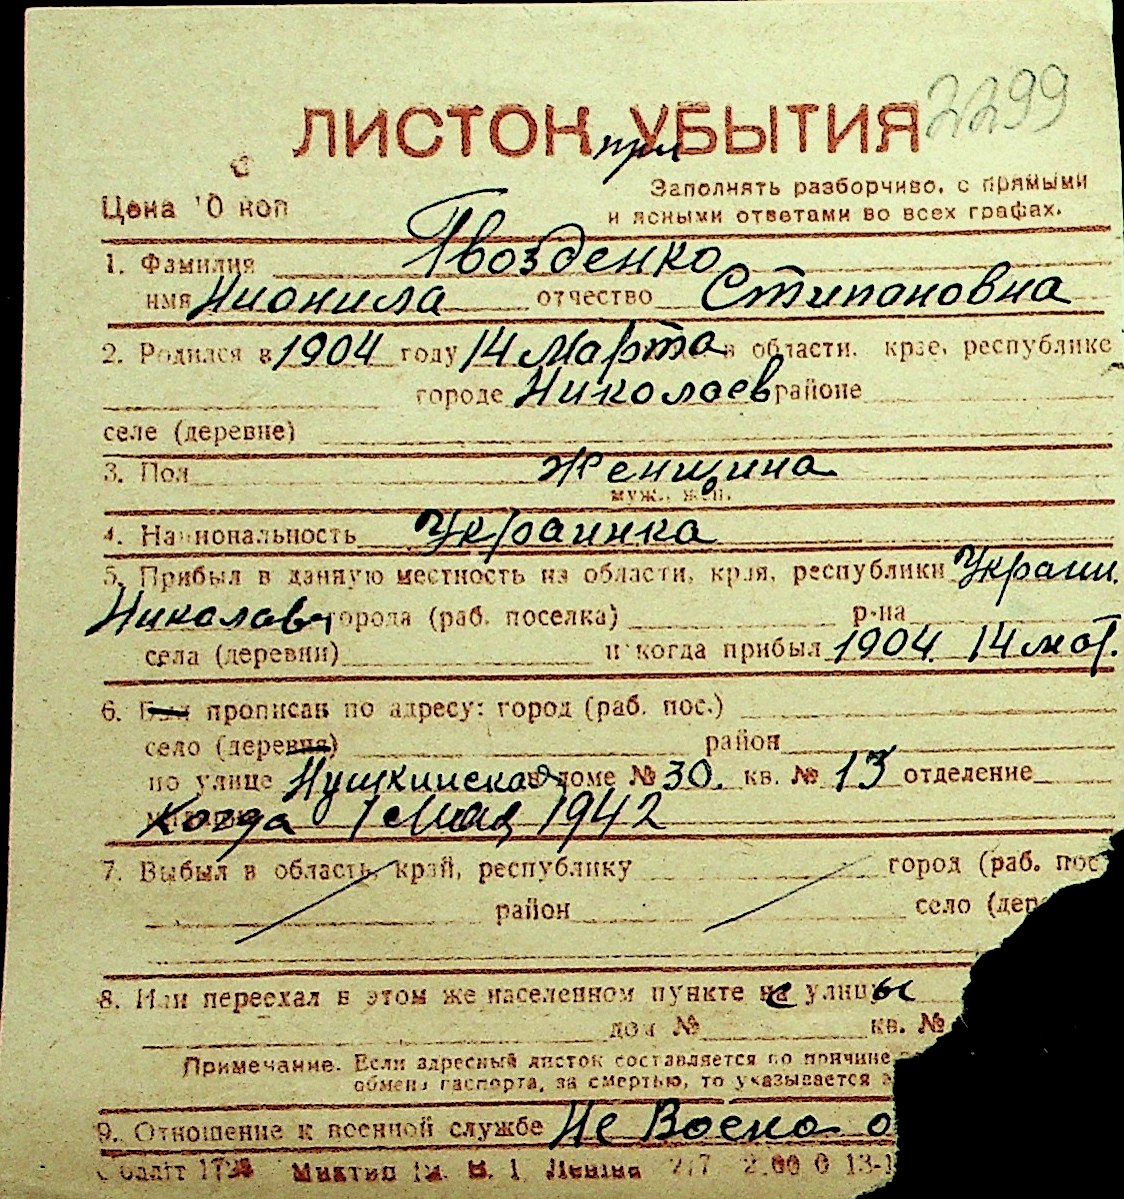 2299
ЛИСТОК при УБЫТИЯ
Цена 10 коп
Заполнять разборчиво, с прямыми
и ясными ответами во всех графах.
1. Фамилия Гвозденко
имя Нионила отчество Стипановна
2. Родился в 1904 году 14 Марта в области, крае, республике
городе Николаев районе
селе (деревне)
3. Пол Женщина
муж., жен.
4. Национальность Украинка
5. Прибыл в данную местность из области, края, республики Украин.
Николаев города (раб. поселка) р-на
села (деревни) и когда прибыл 1904 14 мат.
6. Был прописан по адресу: город (раб. пос.)
село (деревня) район
по улице Пушкинская в доме № 30. кв. № 13 отделение
Когда 1 Мая 1942
7. Выбыл в область, край, республику город (раб. пос
район село (дере
8. Или переехал в этом же населенном пункте с улицы
дом № кв. №
Примечание. Если адресный листок составляется по причине
обмена паспорта, за смертью, то указывается
9. Отношение к военной службе Не Военно о
Ленина 2.00 0 13-1